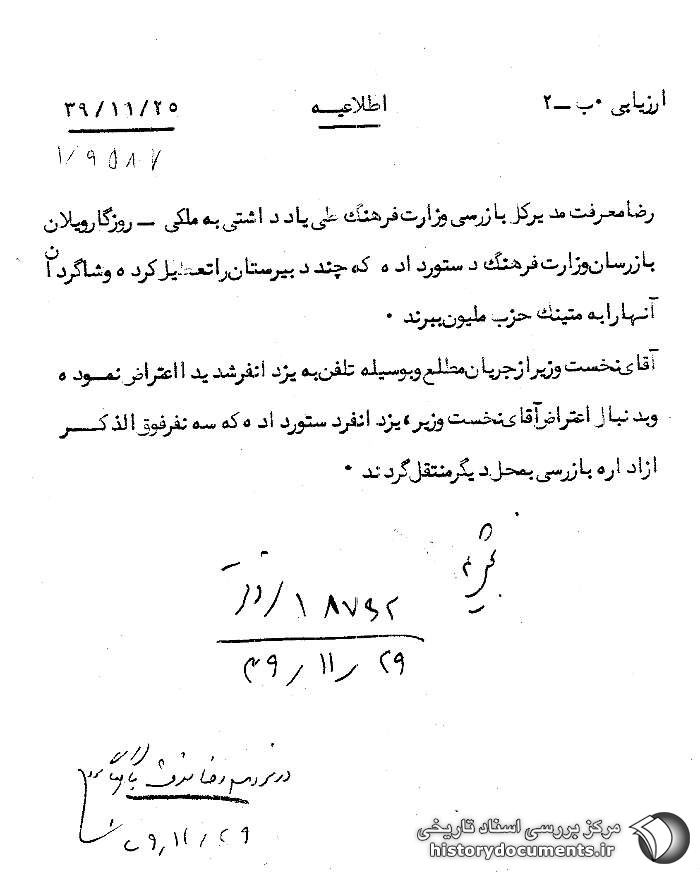 ارزیابی ٠ب ــ ٢ اطلاعیـــه ٣٩/١١/٢٥
رضامعرفت مدیرکل بازرسی وزارت فرهنگ طی یادداشتی به ملکی ــ روزگارویلان
بازرسان وزارت فرهنگ دستورداده که چند دبیرستان راتعطیل کرده وشاگردان
آنهارابه متینگ حزب ملیون ببرند ٠
آقای نخست وزیرازجریان مطلع وبوسیله تلفن به یزدانفرشدیدااعتراض نموده
وبدنبال اعتراض آقای نخست وزیر، یزدانفردستورداده که سه نفرفوق الذکـــر
ازاداره بازرسی بمحل دیگرمنتقل گردند ٠
٣٩/١١/٢٩
مرکز بررسی اسناد تاریخی
historydocuments.ir